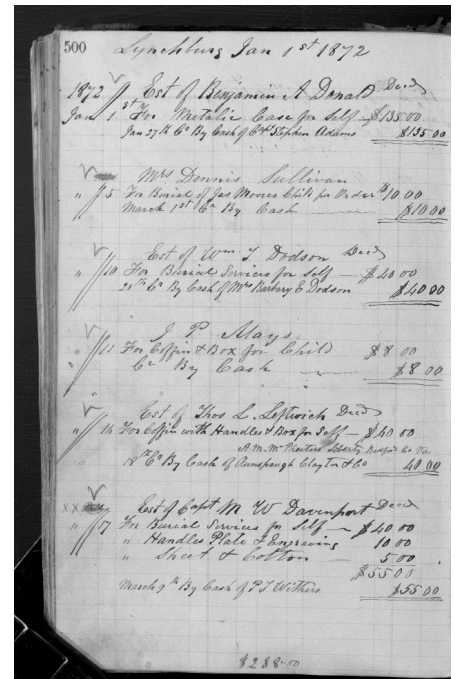 500 Lynchburg Jan 1st 1872
1872 Est of Benjamin A Donald Decd
Jan 1st For Metalic Case for Self — $135.00
Jan 27th Cr By Cash of Capt Stephen Adams $135.00
Mrs Dennis Sullivan
" 5 For Burial of Jas Moores Child per Order $10.00
March 1st Cr By Cash $10.00
Est of Wm J Dodson Decd
" 10 For Burial Services for Self — $40 00
20th Cr By Cash of Mrs Barbary E Dodson $40 00
J P Mays
" 11 For Coffin & Box for Child $8 00
" Cr By Cash $8 00
Est of Thos L. Leftwich Decd
" 14 For Coffin with Handles & Box for Self — $40 00
Liberty Bedford Co Va
18th Cr By Cash of Aunspaugh Clayton & Co 40 00
xx Est of Capt M W Davenport Decd
" 17 For Burial Services for Self — $40.00
" Handles Plate & Engraving 10.00
" Sheet & Cotton — 5 00
$55 00
March 9th By Cash of P T Withers $55 00
$288.00